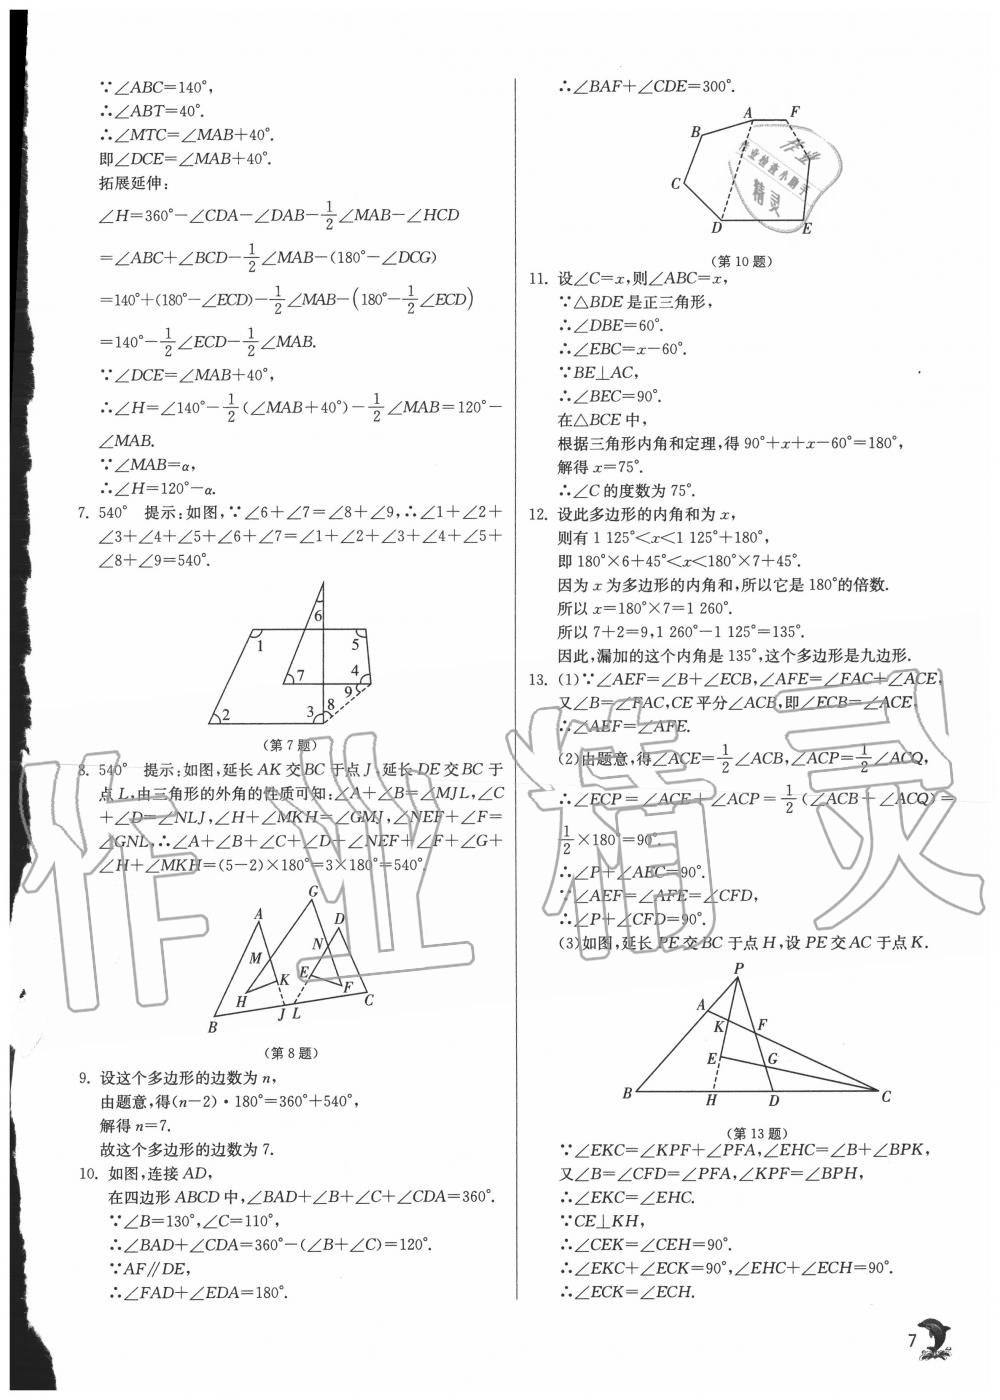 ∵∠ABC=140°,
∴∠ABT=40°.
∴∠MTC=∠MAB+40°.
即∠DCE=∠MAB+40°.
拓展延伸:
∠H=360°-∠CDA-∠DAB-1/2∠MAB-∠HCD
=∠ABC+∠BCD-1/2∠MAB-(180°-∠DCG)
=140°+(180°-∠ECD)-1/2∠MAB-(180°-1/2∠ECD)
=140°-1/2∠ECD-1/2∠MAB.
∵∠DCE=∠MAB+40°,
∴∠H=∠140°-1/2(∠MAB+40°)-1/2∠MAB=120°-
∠MAB.
∵∠MAB=α,
∴∠H=120°-α.
7. 540° 提示:如图,∵∠6+∠7=∠8+∠9,∴∠1+∠2+
∠3+∠4+∠5+∠6+∠7=∠1+∠2+∠3+∠4+∠5+
∠8+∠9=540°.
6
1 5
7 4
9
2 3 8
(第 7 题)
8. 540° 提示:如图,延长 AK 交 BC 于点 J,延长 DE 交 BC 于
点 L,由三角形的外角的性质可知:∠A+∠B=∠MJL,∠C
+∠D=∠NLJ,∠H+∠MKH=∠GMJ,∠NEF+∠F=
∠GNL,∴∠A+∠B+∠C+∠D+∠NEF+∠F+∠G+
∠H+∠MKH=(5-2)×180°=3×180°=540°.
G
A D
N
M
K E
F
H C
B J L
(第 8 题)
9. 设这个多边形的边数为 n,
由题意,得(n-2)·180°=360°+540°,
解得 n=7.
故这个多边形的边数为 7.
10. 如图,连接 AD,
在四边形 ABCD 中,∠BAD+∠B+∠C+∠CDA=360°.
∵∠B=130°,∠C=110°,
∴∠BAD+∠CDA=360°-(∠B+∠C)=120°.
∵AF∥DE,
∴∠FAD+∠EDA=180°.
∴∠BAF+∠CDE=300°.
A F
B
C
D E
作业
作业检查小助手
精灵
(第 10 题)
11. 设∠C=x,则∠ABC=x,
∵△BDE 是正三角形,
∴∠DBE=60°.
∴∠EBC=x-60°.
∵BE⊥AC,
∴∠BEC=90°.
在△BCE 中,
根据三角形内角和定理,得 90°+x+x-60°=180°,
解得 x=75°.
∴∠C 的度数为 75°.
12. 设此多边形的内角和为 x,
则有 1 125°<x<1 125°+180°,
即 180°×6+45°<x<180°×7+45°.
因为 x 为多边形的内角和,所以它是 180°的倍数.
所以 x=180°×7=1 260°.
所以 7+2=9,1 260°-1 125°=135°.
因此,漏加的这个内角是 135°,这个多边形是九边形.
13. (1)∵∠AEF=∠B+∠ECB,∠AFE=∠FAC+∠ACE,
又∠B=∠FAC,CE 平分∠ACB,即∠ECB=∠ACE,
∴∠AEF=∠AFE.
(2)由题意,得∠ACE=1/2∠ACB,∠ACP=1/2∠ACQ,
∴∠ECP=∠ACE+∠ACP=1/2(∠ACB+∠ACQ)=
1/2×180°=90°.
∴∠P+∠AEC=90°.
∵∠AEF=∠AFE=∠CFD,
∴∠P+∠CFD=90°.
(3)如图,延长 PE 交 BC 于点 H,设 PE 交 AC 于点 K.
P
A
K F
E G
B H D C
(第 13 题)
∵∠EKC=∠KPF+∠PFA,∠EHC=∠B+∠BPK,
又∠B=∠CFD=∠PFA,∠KPF=∠BPH,
∴∠EKC=∠EHC.
∵CE⊥KH,
∴∠CEK=∠CEH=90°.
∴∠EKC+∠ECK=90°,∠EHC+∠ECH=90°.
∴∠ECK=∠ECH.
作业精灵
7